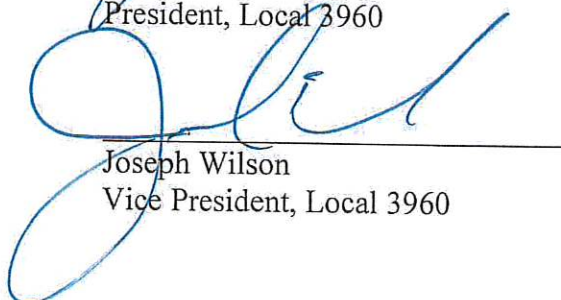 President, Local 3960
Joseph Wilson
Vice President, Local 3960